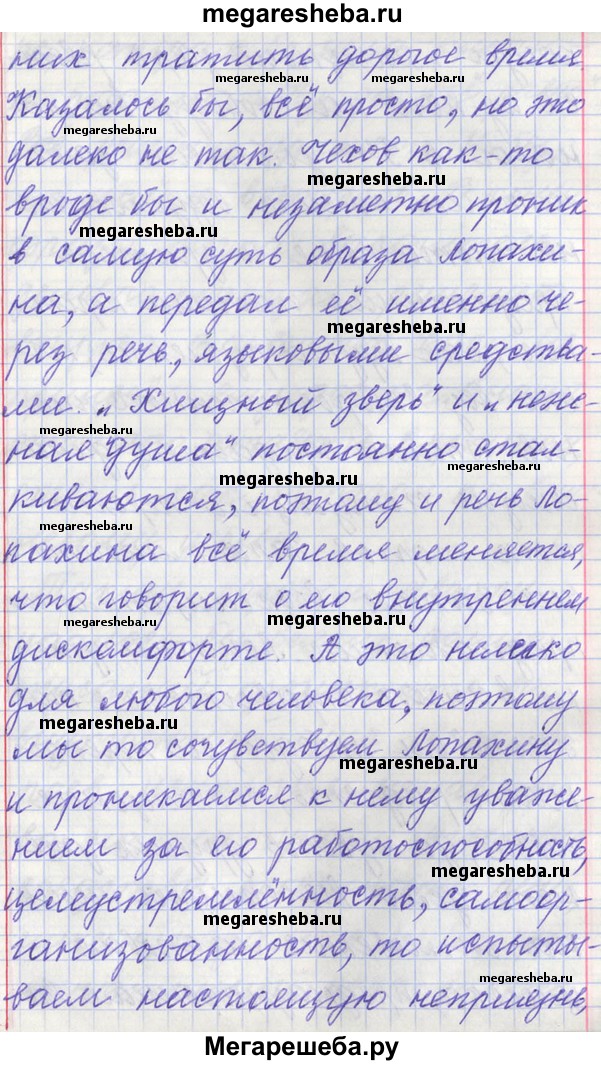 megaresheba.ru
них тратить дорогое время
megaresheba.ru megaresheba.ru
Казалось бы, всё просто, но это
megaresheba.ru
далеко не так. Чехов как-то
megaresheba.ru
вроде бы и незаметно проник
megaresheba.ru
в самую суть образа Лопахи-
на, а передал её именно че-
megaresheba.ru
рез речь, языковыми средства-
ми. „Хищный зверь" и „неже-
ная "душа" постоянно стал-
megaresheba.ru
megaresheba.ru
киваются, поэтому и речь Ло-
megaresheba.ru
пахина всё время меняется,
что говорит о его внутреннем
megaresheba.ru megaresheba.ru
дискомфорте. А это нелегко
для любого человека, поэтому
megaresheba.ru
мы то сочувствуем Лопахину
megaresheba.ru
и проникаемся к нему уваже-
нием за его работоспособность,
megaresheba.ru
целеустремлённость, самоор-
megaresheba.ru
ганизованность, то испыты-
megaresheba.ru
ваем настоящую неприязнь,
Мегарешеба.ру